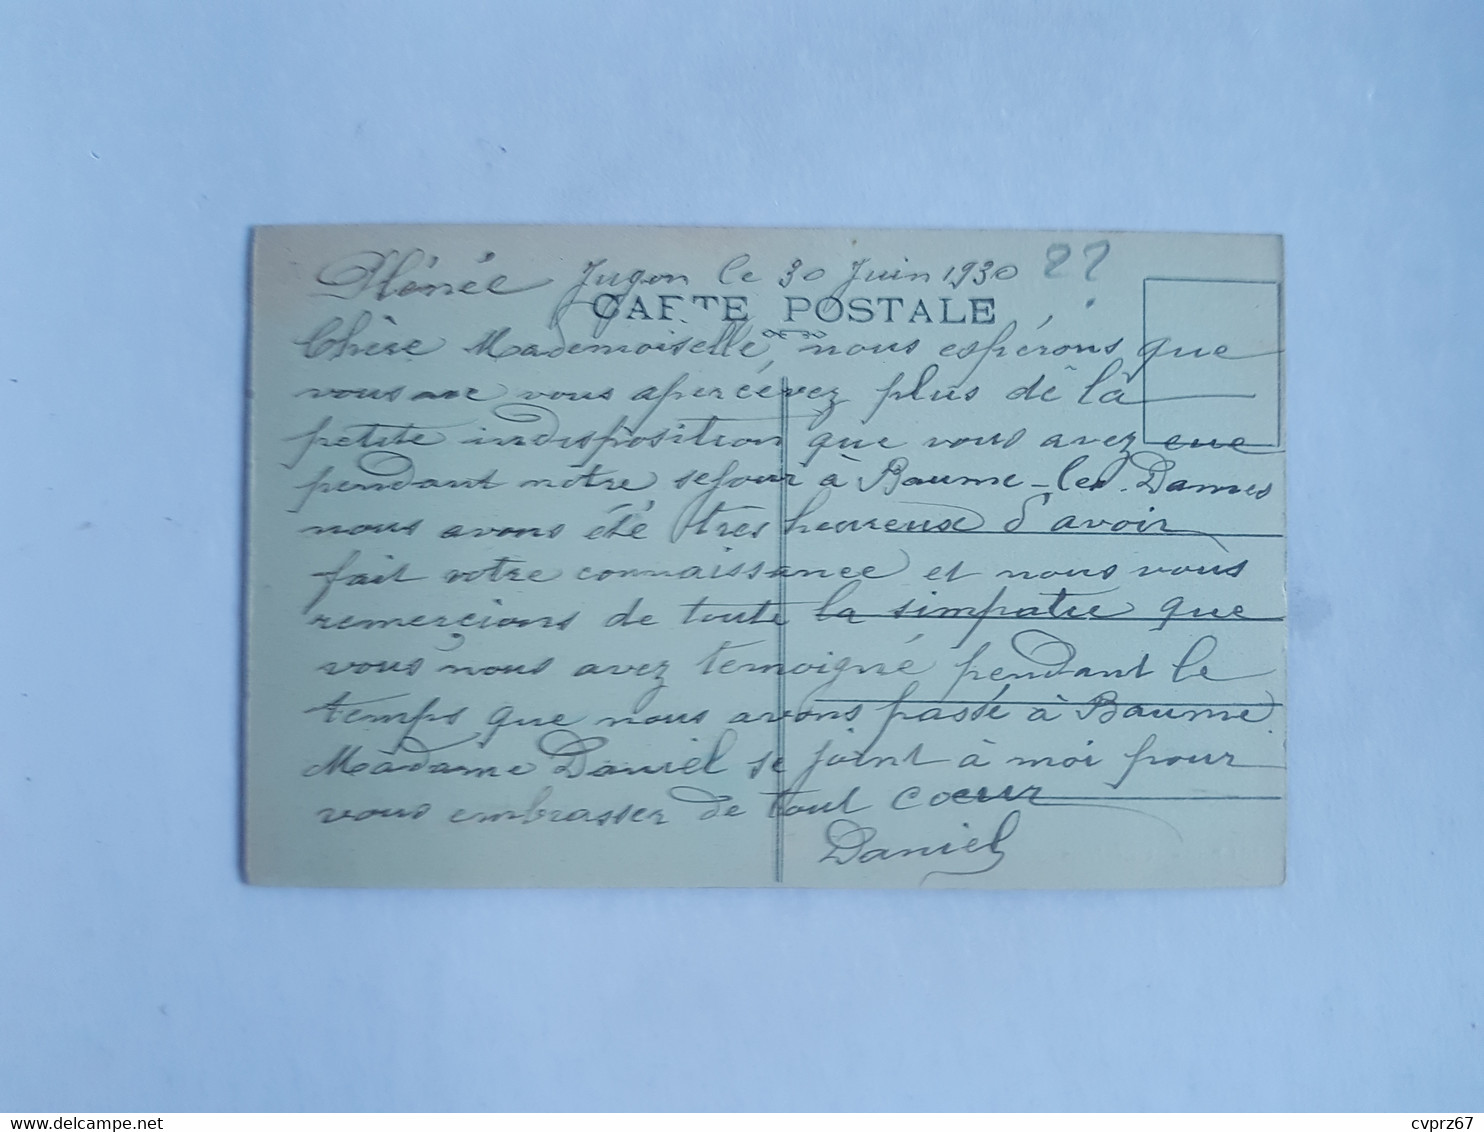 Plénée Jugon le 30 Juin 1930 22
CARTE POSTALE
Chère Mademoiselle, nous espérons que
vous ne vous apercévez plus de la
petite indisposition que vous avez eue
pendant notre sejour à Baume-les-Dames
nous avons été très heureux d'avoir
fait votre connaissance et nous vous
remercions de toute la simpatie que
vous nous avez témoigné pendant le
temps que nous avons passé à Baume
Madame Daniel se joint à moi pour
vous embrasser de tout coeur
Daniel
www.delcampe.net
cvprz67